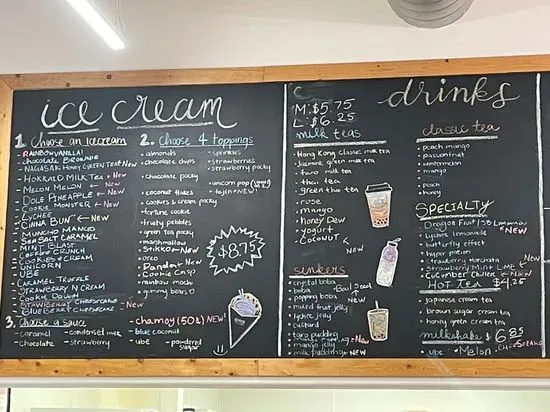 ice cream
1. Choose an icecream
RAINBOW VANILLA!
Chocolate Brownie
Nagasaki Honey Green Tea ← New
Hokkaido Milk Tea
Melon Melon ← New
Dole Pineapple ← New
Cookie Monster ← New
Lychee
"Cinna Bun" ← New
Muncho Mango
Sea Salt Caramel
Mint Blast
Coffee Crunch
Cookies & Cream
Unicorn
UBE
Caramel Truffle
Strawberry N Cream
Cookie Dough
Strawberry Cheesecake
Blueberry Cheesecake New
2. Choose 4 toppings
almonds
chocolate chips
chocolate pocky
coconut flakes
cookies & cream pocky
fortune cookie
fruity pebbles
green tea pocky
marshmallow
Stikko ← New
oreo
Panda ← New
Cookie Crisp
rainbow mochi
gummy bears
sprinkles
strawberries
strawberry pocky
unicorn pop
tajin ← New!
$8.75
3. Choose a sauce
caramel
chocolate
condensed milk
strawberry
chamoy (50¢) New!
blue coconut
ube
powdered sugar
drinks
M: $5.75
L: $6.25
milk teas
Hong Kong Classic milk tea
Jasmine green milk tea
taro milk tea
thai tea
green thai tea
rose
mango
honey dew
yogurt
Coconut New
sinkers
crystal boba
boba
popping boba
mixed fruit jelly
lychee jelly
custard
taro pudding
mango jelly
milk pudding ← New
Basil Seed New
classic tea
peach mango
passionfruit
watermelon
mango
peach
honey
SPECIALTY
Dragon Fruit Lemonade New
lychee lemonade
butterfly effect
hyper potion
strawberry horchata
Strawberry Mint Lime New
Cucumber Chiller ← New
Hot Tea $4.25
Japanese cream tea
brown sugar cream tea
honey green cream tea
milkshake $6.85
ube
Melon